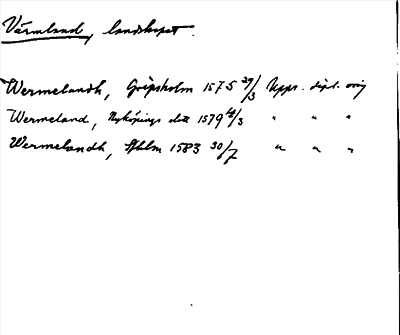 Värmland, landskapet.
Wermelandh, Gripsholm 1575 29/3 Upps. dipl. orig
Wermeland, Nyköpings slott 1579 12/3 " " "
Wermelandh, Sthlm 1583 30/7 " " "